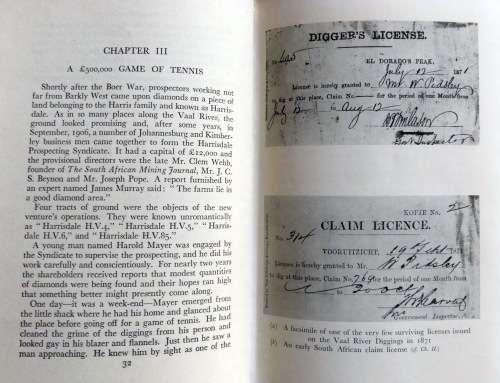 CHAPTER III
A £500,000 GAME OF TENNIS
Shortly after the Boer War, prospectors working not
far from Barkly West came upon diamonds on a piece of
land belonging to the Harris family and known as Harris-
dale. As in so many places along the Vaal River, the
ground looked promising and, after some years, in
September, 1906, a number of Johannesburg and Kimber-
ley business men came together to form the Harrisdale
Prospecting Syndicate. It had a capital of £12,000 and
the provisional directors were the late Mr. Clem Webb,
founder of The South African Mining Journal, Mr. J. C.
S. Beynon and Mr. Joseph Pope. A report furnished by
an expert named James Murray said: "The farms lie in
a good diamond area."
Four tracts of ground were the objects of the new
venture's operations. They were known unromantically
as "Harrisdale H.V.4," "Harrisdale H.V.5," "Harris-
dale H.V.6," and "Harrisdale H.V.85."
A young man named Harold Mayer was engaged by
the Syndicate to supervise the prospecting, and he did his
work carefully and conscientiously. For nearly two years
the shareholders received reports that modest quantities
of diamonds were being found and their hopes ran high
that something better might presently come along.
One day—it was a week-end—Mayer emerged from
the little shack where he had his home and glanced about
the place before going off for a game of tennis. He had
cleaned the grime of the diggings from his person and
looked gay in his blazer and flannels. Just then he saw a
man approaching. He knew him by sight as one of the
32
DIGGER'S LICENSE.
EL DORADO'S PEAK,
July 12 1871
License is hereby granted to Mr W. Pidsley
to dig at this place, Claim No for the period of one Month from
July 12 to Aug 12
Inspector
KOPJE No. 2
No. 314
CLAIM LICENCE.
VOORUITZICHT,
License is hereby granted to W Pidsley
to dig at this place, Claim No. 769 for the period of one Month from
to
Government Inspector.
(a) A facsimile of one of the very few surviving licenses issued
on the Vaal River Diggings in 1871
(b) An early South African claim license